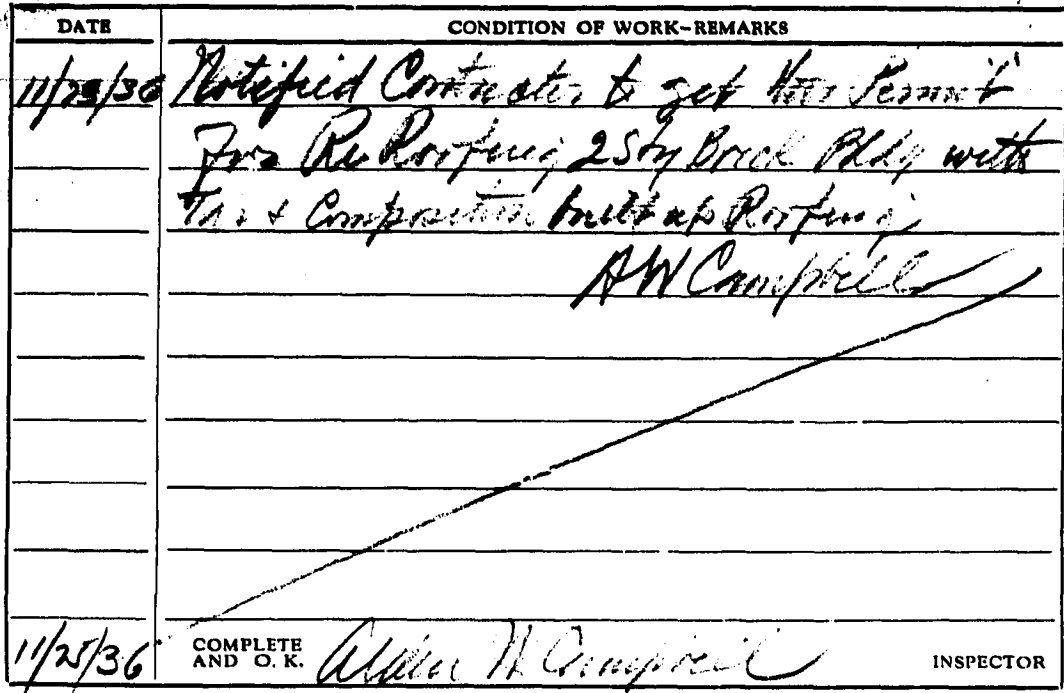 DATE CONDITION OF WORK-REMARKS
11/23/36 Notified Contractor to get this Permit
For Re Roofing 2 Sty Brick Bldg with
Tar & Composition built up Roofing
A W Campbell
11/25/36 COMPLETE AND O. K. Alden W Campbell INSPECTOR